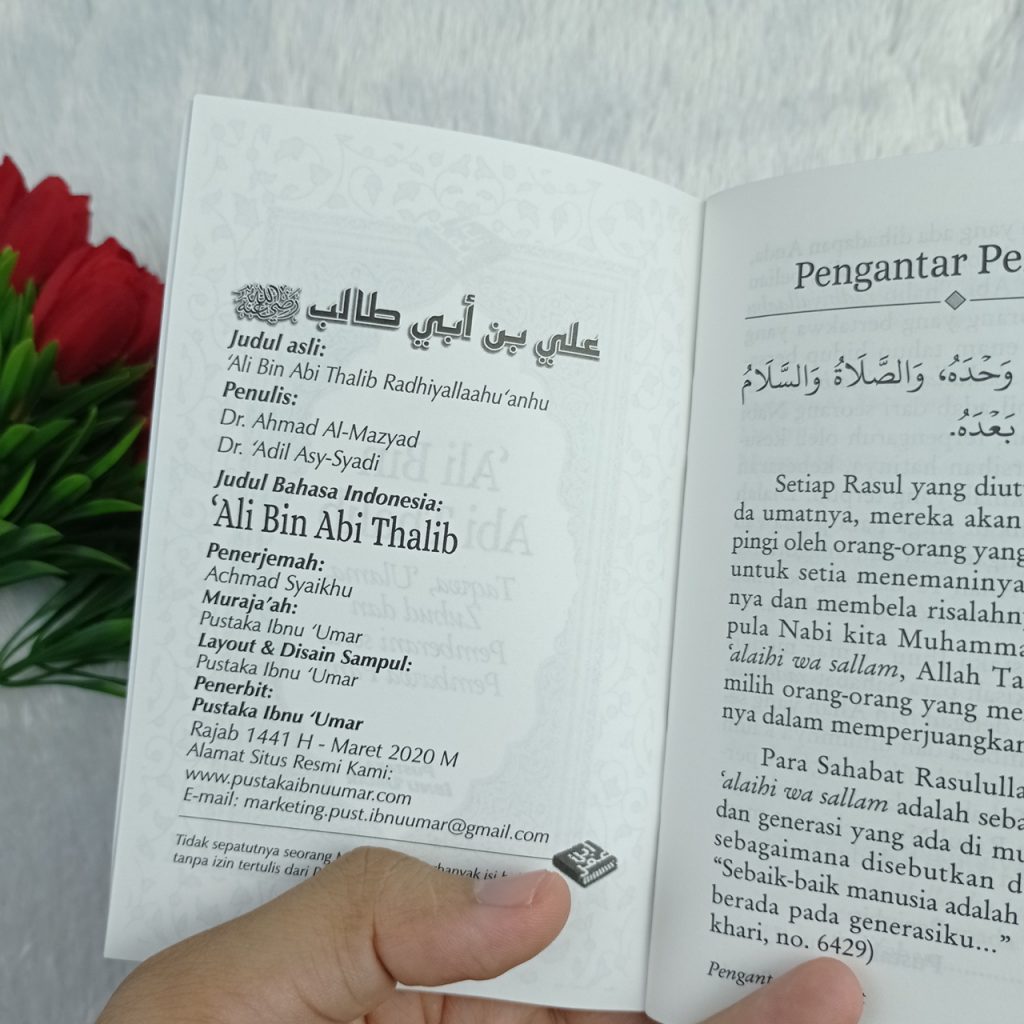 علي بن أبي طالب رضي الله عنه
Judul asli:
‘Ali Bin Abi Thalib Radhiyallaahu‘anhu
Penulis:
Dr. Ahmad Al-Mazyad
Dr. ‘Adil Asy-Syadi
Judul Bahasa Indonesia:
‘Ali Bin Abi Thalib
Penerjemah:
Achmad Syaikhu
Muraja’ah:
Pustaka Ibnu ‘Umar
Layout & Disain Sampul:
Pustaka Ibnu ‘Umar
Penerbit:
Pustaka Ibnu ‘Umar
Rajab 1441 H - Maret 2020 M
Alamat Situs Resmi Kami:
www.pustakaibnuumar.com
E-mail: marketing.pust.ibnuumar@gmail.com
Tidak sepatutnya seorang
tanpa izin tertulis dari
Pengantar Pe
وَحْدَهُ، وَالصَّلَاةُ وَالسَّلَامُ
بَعْدَهُ.
Setiap Rasul yang diut
da umatnya, mereka akan
pingi oleh orang-orang yang
untuk setia menemaninya
nya dan membela risalahn
pula Nabi kita Muhamma
‘alaihi wa sallam, Allah Ta
milih orang-orang yang me
nya dalam memperjuangkan
Para Sahabat Rasululla
‘alaihi wa sallam adalah seba
dan generasi yang ada di mu
sebagaimana disebutkan d
“Sebaik-baik manusia adalah
berada pada generasiku...”
khari, no. 6429)
Pengant